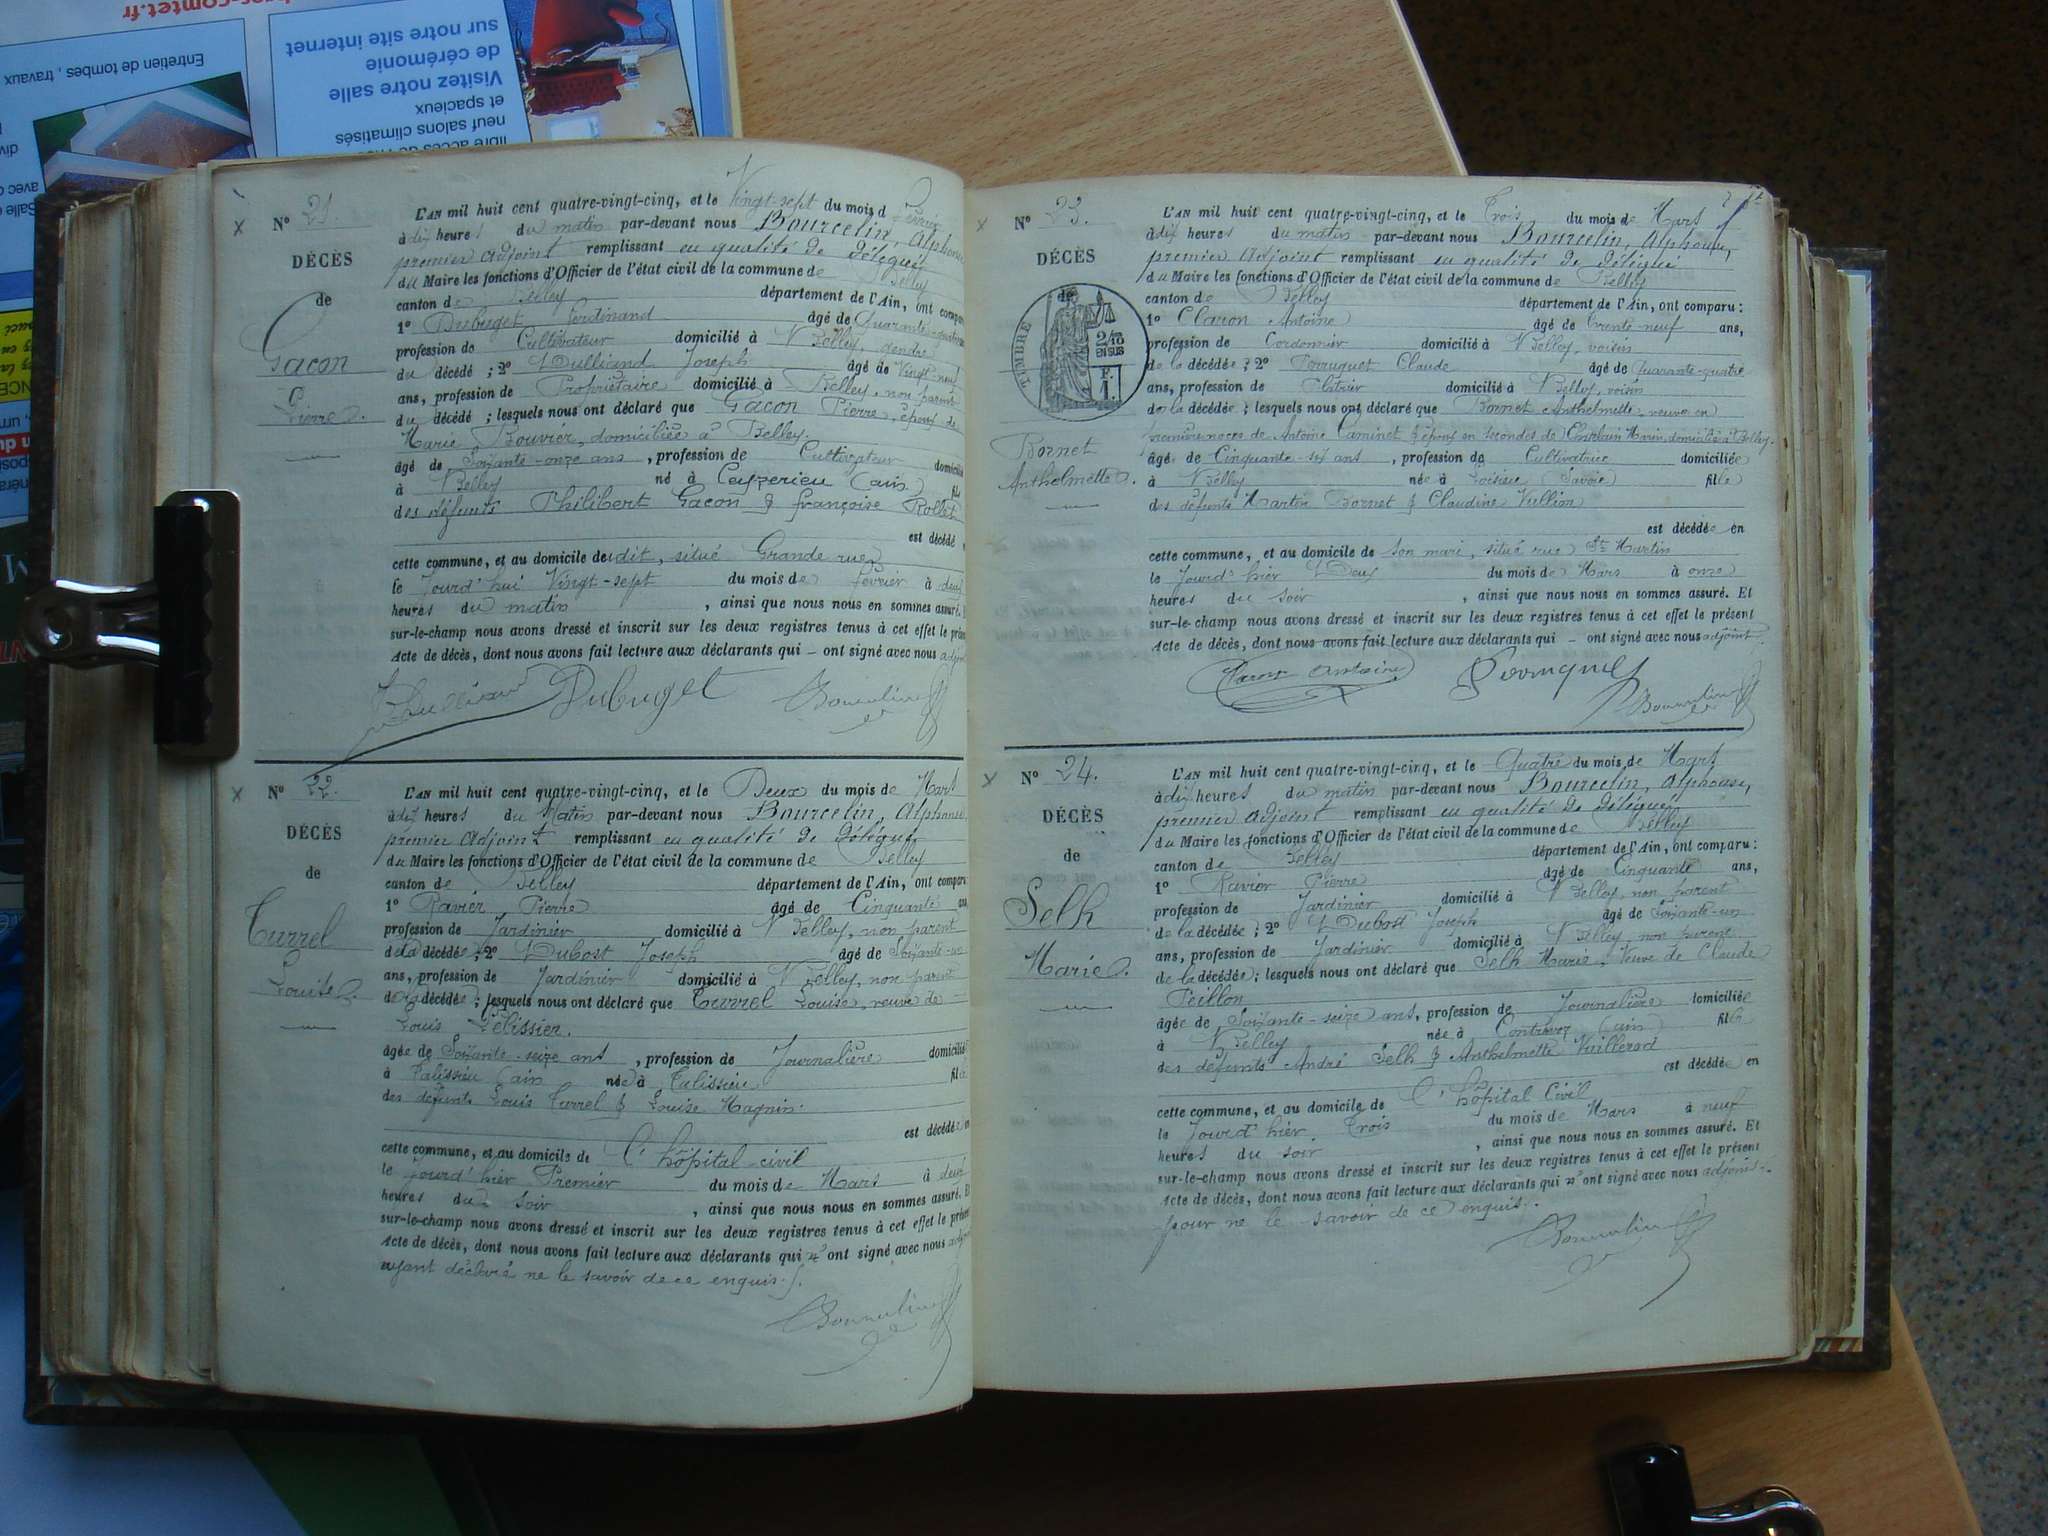 Entretien de tombes, travaux
Visitez notre salle
de cérémonie
sur notre site internet
neuf salons climatisés
et spacieux
N° 21.
DÉCÈS
de
Gacon
Pierre
L'AN mil huit cent quatre-vingt-cinq, et le Vingt-sept du mois d Février
à dix heures du matin par-devant nous Bourcelin, Alphonse
premier adjoint remplissant en qualité de délégué
du Maire les fonctions d'Officier de l'état civil de la commune de Belley
canton de Belley département de l'Ain, ont comparu
1° Dubuget Ferdinand âgé de Quarante-quatre
profession de Cultivateur domicilié à Belley, gendre
du décédé ; 2° Dullirand Joseph âgé de Vingt-neuf
ans, profession de Propriétaire domicilié à Belley, non parent
du décédé ; lesquels nous ont déclaré que Gacon Pierre, époux de
Marie Bouvier, domiciliée à Belley.
âgé de Soixante-onze ans, profession de Cultivateur domicilié
à Belley né à Ceyzerieu (ain) fils
des défunts Philibert Gacon & françoise Rollet
est décédé
cette commune, et au domicile de udit, situé Grande rue
le Jourd'hui Vingt-sept du mois de février à deux
heures du matin, ainsi que nous nous en sommes assuré. E
sur-le-champ nous avons dressé et inscrit sur les deux registres tenus à cet effet le prése
Acte de décès, dont nous avons fait lecture aux déclarants qui – ont signé avec nous adjoi
Dubuget Bourcelin
N° 22.
DÉCÈS
de
Turrel
Louise
L'AN mil huit cent quatre-vingt-cinq, et le Deux du mois de Mars
à dix heures du Matin par-devant nous Bourcelin, Alphonse
premier Adjoint remplissant en qualité de délégué
du Maire les fonctions d'Officier de l'état civil de la commune de Belley
canton de Belley département de l'Ain, ont comparu
1° Ravier Pierre âgé de Cinquante an
profession de Jardinier domicilié à Belley, non parent
de la décédée ; 2° Dubost Joseph âgé de Soixante-un
ans, profession de Jardinier domicilié à Belley, non parent
de la décédée ; lesquels nous ont déclaré que Turrel Louise, veuve de
Louis Pélissier.
âgée de Soixante-seize ans, profession de Journalière domicilié
à Talissieu (ain née à Talissieu fille
des défunts Louis Turrel & Louise Magnin.
est décédée en
cette commune, et au domicile de l'hôpital civil
le Jourd'hier Premier du mois de Mars à deux
heures du soir, ainsi que nous nous en sommes assuré. E
sur-le-champ nous avons dressé et inscrit sur les deux registres tenus à cet effet le prése
Acte de décès, dont nous avons fait lecture aux déclarants qui n'ont signé avec nous adjoi
ayant déclaré ne le savoir de ce enquis.
Bourcelin
N° 23.
DÉCÈS
de
TIMBRE
2/10
EN SUS
F.
1.
Bornet
Anthelmette
L'AN mil huit cent quatre-vingt-cinq, et le Trois du mois de Mars
à dix heures du matin par-devant nous Bourcelin, Alphonse,
premier Adjoint remplissant en qualité de délégué
du Maire les fonctions d'Officier de l'état civil de la commune de Belley
canton de Belley département de l'Ain, ont comparu :
1° Claron Antoine âgé de trente-neuf ans,
profession de Cordonnier domicilié à Belley, voisin
de la décédée ; 2° Perruquet Claude âgé de Quarante-quatre
ans, profession de Platrier domicilié à Belley, voisin
de la décédée ; lesquels nous ont déclaré que Bornet Anthelmette, veuve en
première noces de Antoine Caminet & épouse en secondes de Marin, domiciliée à Belley.
âgée de Cinquante-six ans, profession de Cultivatrice domiciliée
à Belley née à Loisieu (Savoie) fille
des défunts Martin Bornet & Claudine Vullion
est décédée en
cette commune, et au domicile de son mari, situé rue St Martin
le Jourd'hier Deux du mois de Mars à onze
heures du soir, ainsi que nous nous en sommes assuré. Et
sur-le-champ nous avons dressé et inscrit sur les deux registres tenus à cet effet le présent
Acte de décès, dont nous avons fait lecture aux déclarants qui – ont signé avec nous adjoint.
Claron Antoine Perruquet
Bourcelin
N° 24.
DÉCÈS
de
Selh
Marie
L'AN mil huit cent quatre-vingt-cinq, et le Quatre du mois de Mars
à dix heures du matin par-devant nous Bourcelin, Alphonse,
premier adjoint remplissant en qualité de délégué
du Maire les fonctions d'Officier de l'état civil de la commune de Belley
canton de Belley département de l'Ain, ont comparu :
1° Ravier Pierre âgé de Cinquante ans,
profession de Jardinier domicilié à Belley, non parent
de la décédée ; 2° Dubost Joseph âgé de Soixante-un
ans, profession de Jardinier domicilié à Belley non parent
de la décédée ; lesquels nous ont déclaré que Selh Marie, Veuve de Claude
Peillon
âgée de Soixante-seize ans, profession de Journalière domiciliée
à Belley née à Contrevoz (ain) fille
des défunts André Selh & Anthelmette Vuillerod
est décédée en
cette commune, et au domicile de l'hôpital Civil
le Jourd'hier Trois du mois de Mars à neuf
heures du soir, ainsi que nous nous en sommes assuré. Et
sur-le-champ nous avons dressé et inscrit sur les deux registres tenus à cet effet le présent
Acte de décès, dont nous avons fait lecture aux déclarants qui n'ont signé avec nous adjoint
pour ne le savoir de ce enquis.
Bourcelin